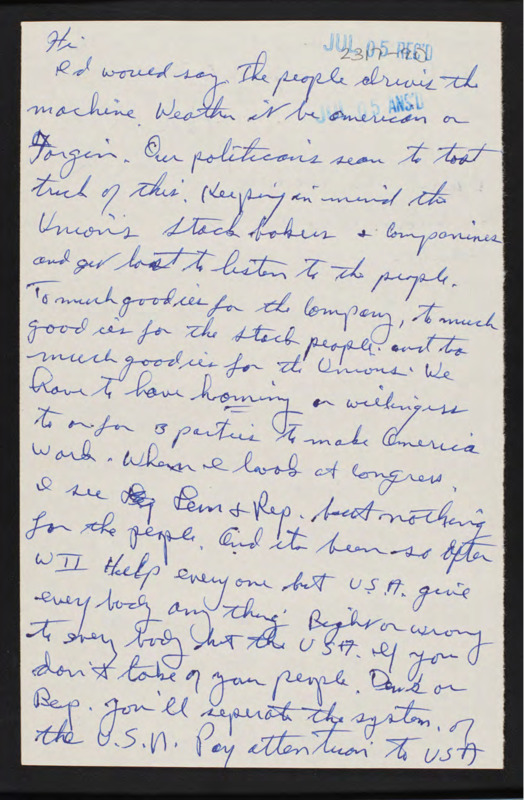 Hi
JUL 05 REC'D
JUL 05 ANS'D
I'd would say. The people drives the
machine. Weather it be american or
Forgin. Our politicans seam to
truck of this. Keeping in mind the
Union's stock bokers & Companines
and get lost to listen to the people.
To much goodies for the Company, to much
goodies for the stock people. and to
much goodies for the Unions. We
have to have or willingess
to or for 3 parties to make America
work. When I look at Congress.
I see Dem & Rep. but nothing
for the people. And its been so after
WII Help everyone but USA. give
every body any thing Right or wrong
to every body but the USA. If you
don't take of your people. Dem's or
Rep. you'll seperate the system. of
the U.S.A. Pay attention to USA